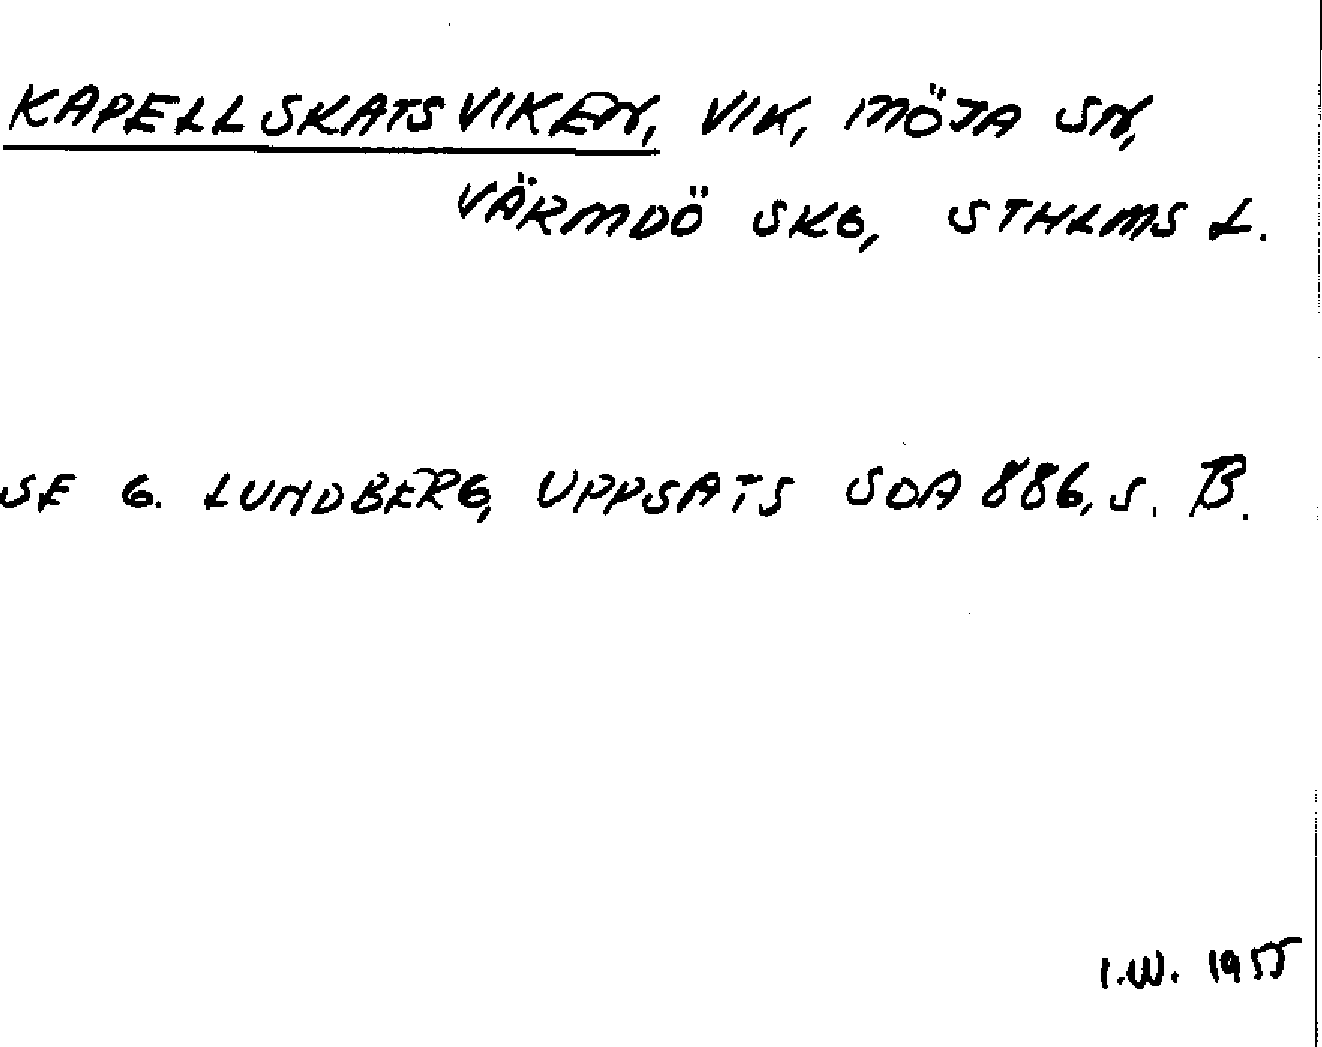 KAPELLSKATSVIKEN, VIK, MÖJA SN,
VÄRMDÖ SKG, STHLMS L.
SE G. LUNDBERG, UPPSATS SOA 886, S. 13.
I.W. 1955